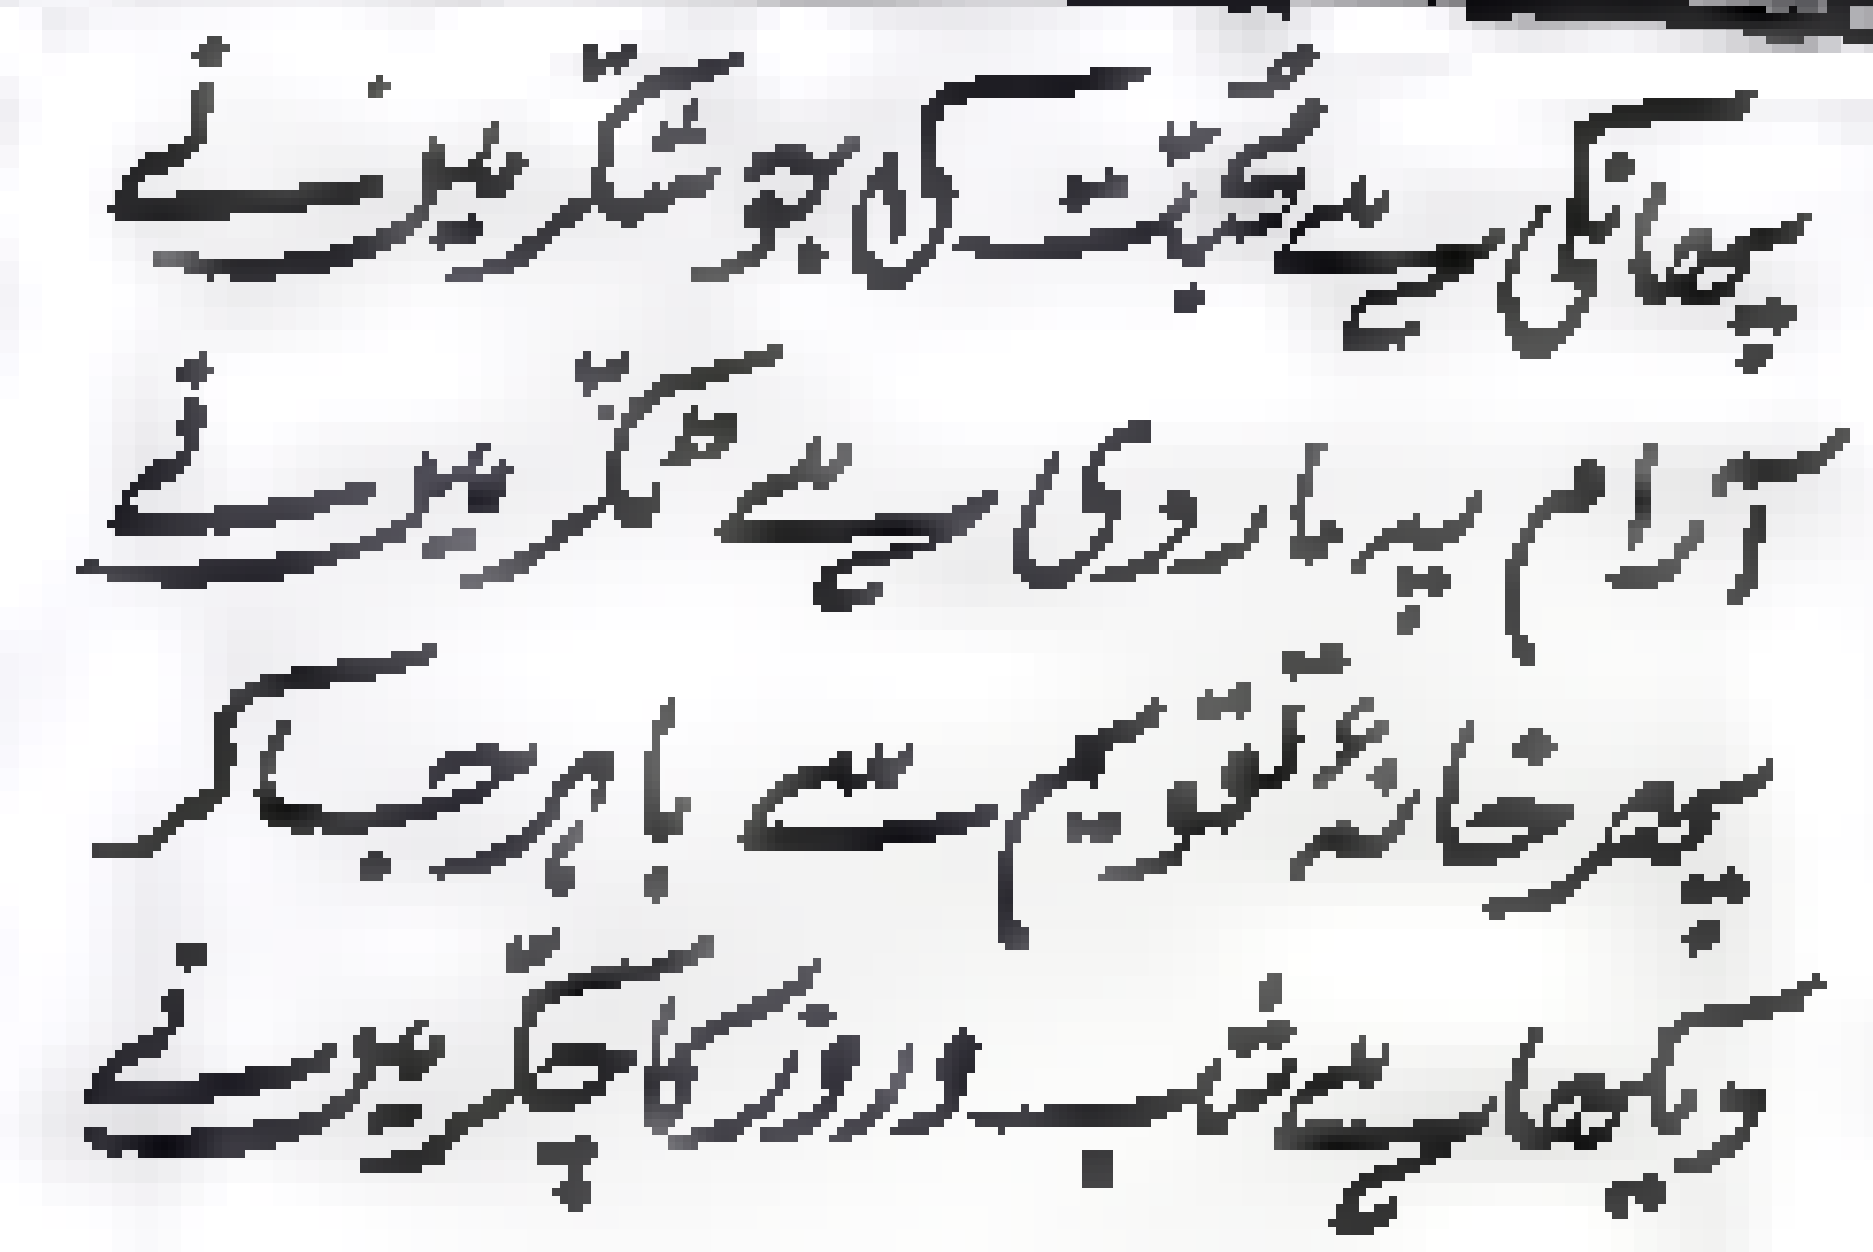 پھانکی ہے محبّت کی جو شکّر میں نے
آرام پہ ماردی ہے ٹکّر میں نے
پھر خانۂ تقویم سے باہر جا کر
دیکھا ہے شب و روز کا چکّر میں نے